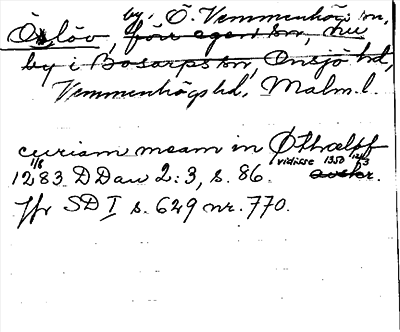 by, Ö. Vemmenhögs sn,
Öslöv, förr egen sn, nu
by i Bosarps sn, Onsjö hd,
Vemmenhögs hd, Malm. l.
curiam meam in Øthzløf
1/8 vidisse 1350 12/3
1283 DDan 2:3, s. 86. avskr.
Jfr SD I s. 629 nr. 770.